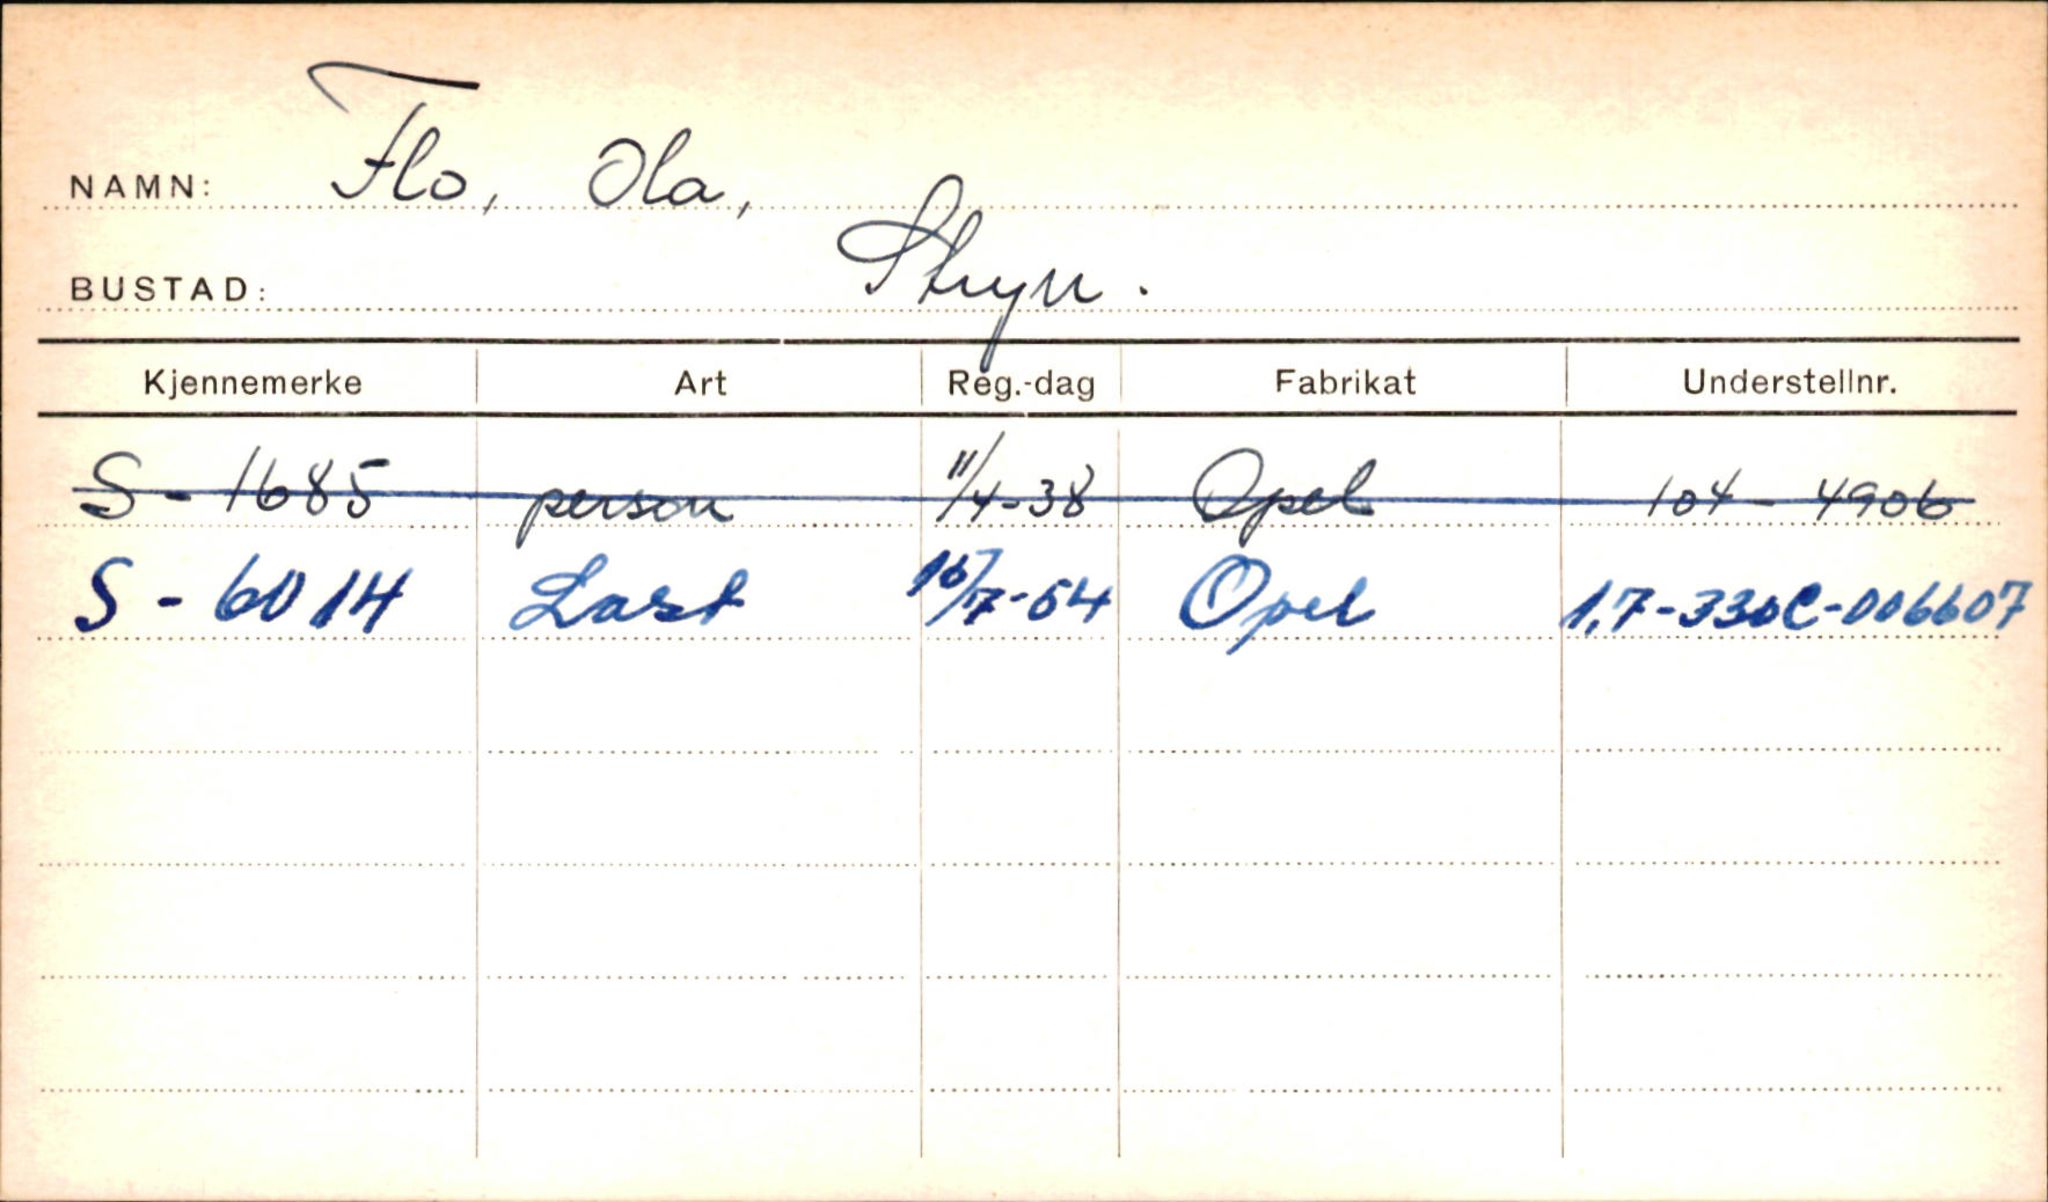 NAMN: Flo, Ola,
BUSTAD: Stryn.
Kjennemerke Art Reg.-dag Fabrikat Understellnr.
S - 1685 person 11/4-38 Opel 104 - 4906
S - 6014 Last 16/7-54 Opel 1,7-330C-006607